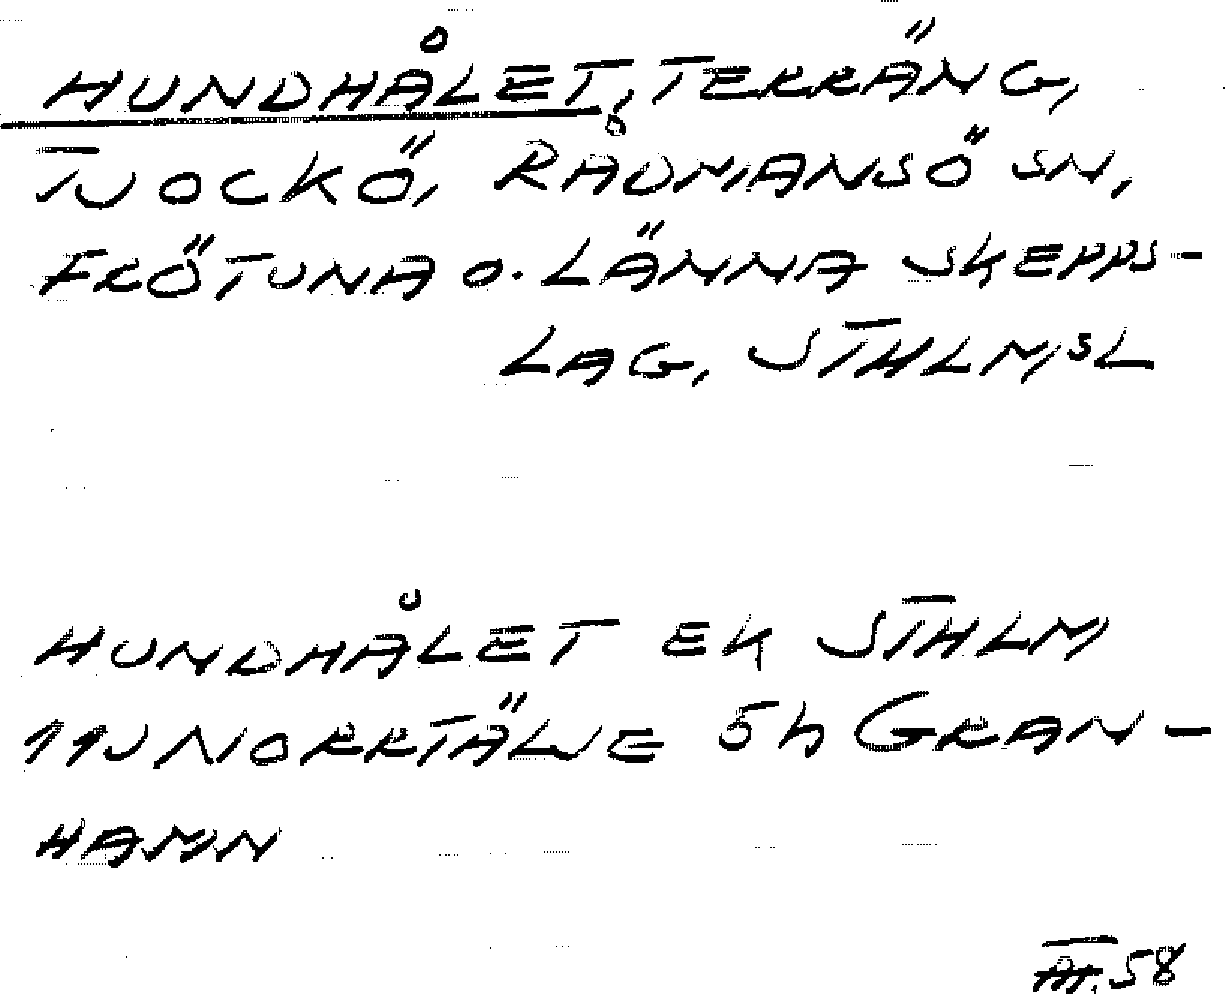 HUNDHÅLET, TERRÄNG,
TJOCKÖ, RÅDMANSÖ SN,
FRÖTUNA O. LÄNNA SKEPPS-
LAG, STHLM,SL
HUNDHÅLET EK STHLM
11J NORRTÄLJE 5h GRAN-
HAMN
58